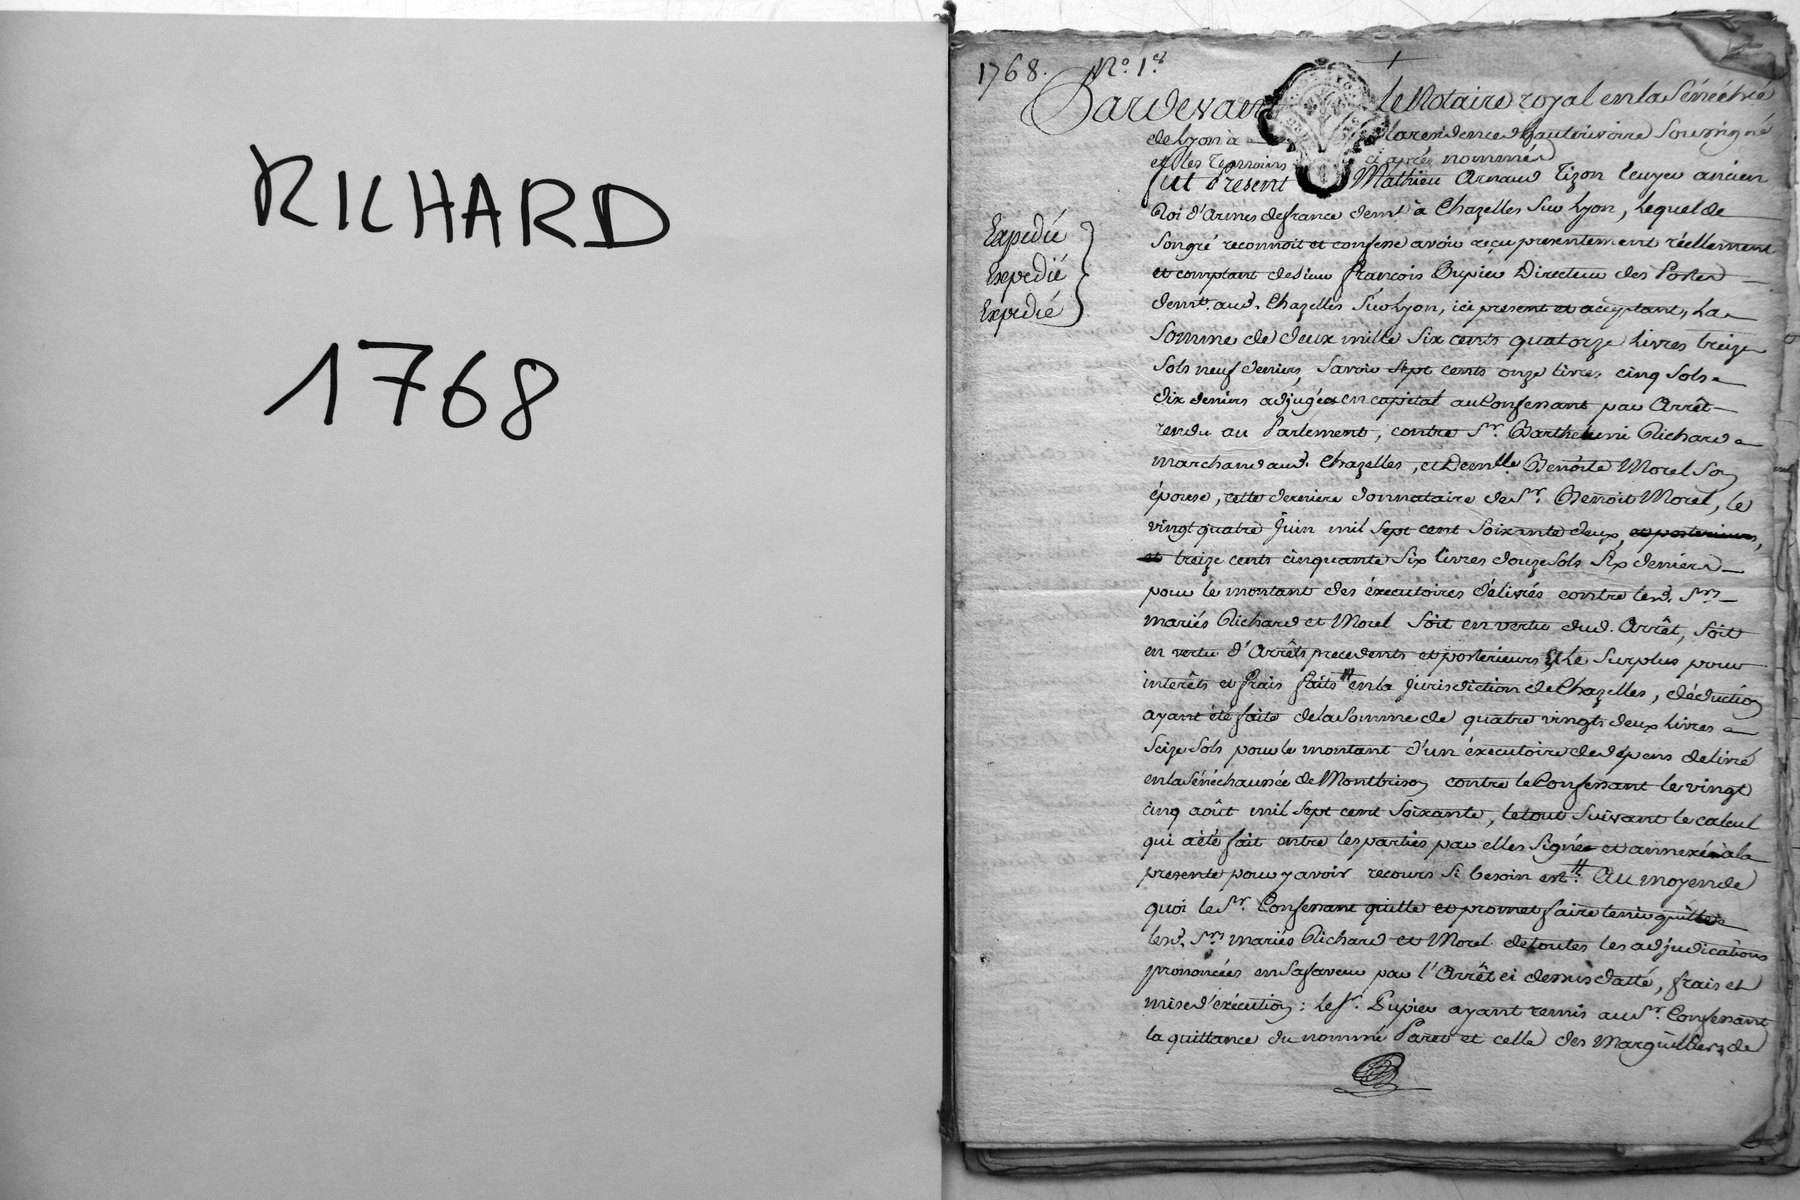 RICHARD
1768
1768. No. 1er
Pardevant le Notaire royal en la Sénéchée
de Lyon à la residence d'hauterivoire Soussigné
et les Temoins ci après nommés
fut Présent Mathieu Arnaud Tizon Ecuyer ancien
Roi d'Armes de france demt à Chazelles Sur Lyon, Lequel de
Son gré reconnoit et confesse avoir reçu presentement réellement
et comptant de Sieur François Dupieu Directeur des Postes
demt. aud. Chazelles Sur Lyon, ici present et acceptant, La
Somme de deux mille Six cents quatorze Livres treize
Sols neuf deniers, Savoir Sept cents onze livres cinq Sols
dix deniers adjugées en capital au Confessant par Arrêt
rendu au Parlement, contre Sr. Barthelemi Richard
marchand aud. Chazelles, et Demlle. Benoite Morel Son
épouse, cette derniere donnataire de Sr. Benoit Morel, le
vingt quatre Juin mil Sept cent Soixante deux, et posterieurs,
et treize cents cinquante Six livres douze Sols Six deniers
pour le montant des éxecutoires délivrés contre lesd. Srs
mariés Richard et Morel Soit en vertu dud. Arrêt, Soit
en vertu d'Arrêts precedents et posterieurs Et Le Surplus pour
interêts et frais faits # en la Jurisdiction de Chazelles, déduction
ayant été faite de la Somme de quatre vingts deux Livres
Seize Sols pour le montant d'un éxecutoire de depens delivré
en la Sénéchaussée de Montbrison contre le Confessant le vingt
cinq août mil Sept cent Soixante, le tout Suivant le calcul
qui a été fait entre les parties par elles Signé et annexé à la
presente pour y avoir recours Si besoin est #. Au moyen de
quoi le Sr. Confessant quitte et promet faire tenir quittes
lesd. Srs mariés Richard et Morel de toutes les adjudications
prononcées en Sa faveur par l'Arrêt ci dessus datté, frais et
mise d'éxécution: Le Sr. Dupieu ayant remis au Sr. Confessant
la quittance du nommé et celle des Marguilliers de
Expedié
Expedié
Expedié